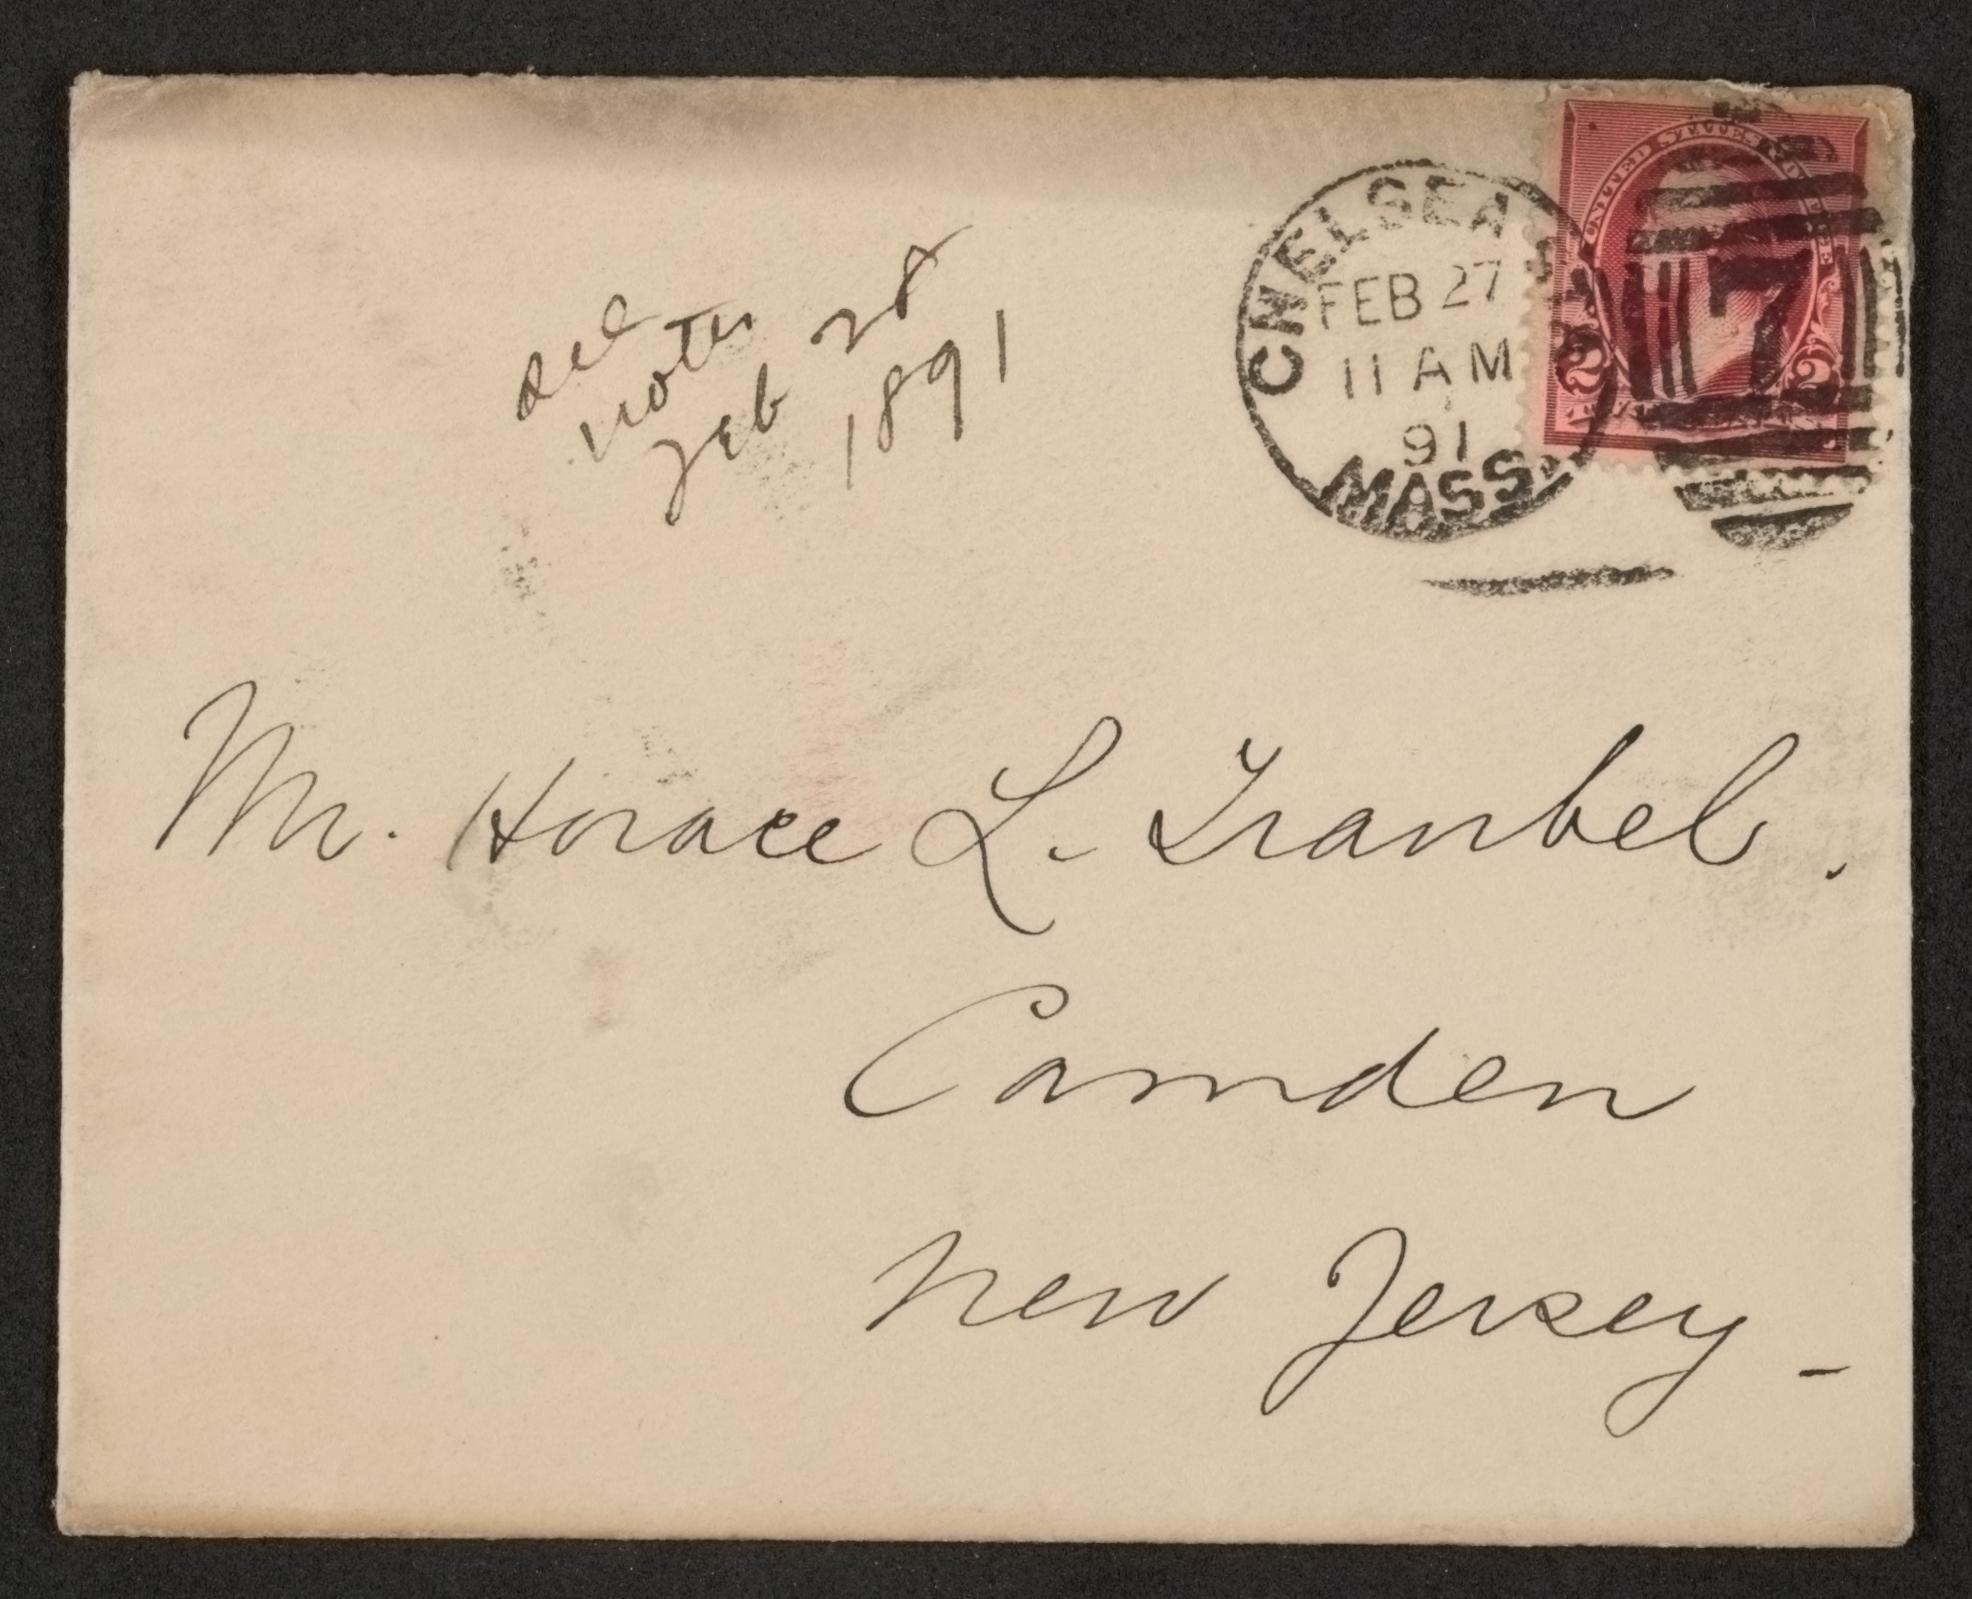 see
notes
Feb 28
1891
CHELSEA
FEB 27
11 AM
91
MASS.
UNITED STATES
2 2
7
Mr. Horace L. Traubel.
Camden
New Jersey_